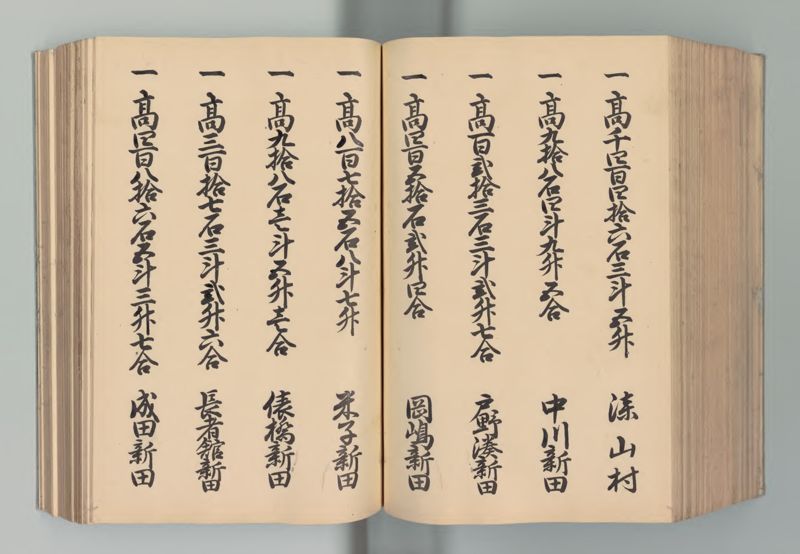 一 高千四百四拾六石三斗五升 湊山村
一 高九拾八石四斗九升五合 中川新田
一 高百弐拾三石三斗弐升七合 戸野湊新田
一 高四百五拾石弐升四合 岡嶋新田
一 高八百七拾五石八斗七升 米子新田
一 高九拾八石壱斗五升壱合 俵橋新田
一 高三百拾七石三斗弐升六合 長者館新田
一 高四百八拾六石五斗三升七合 成田新田